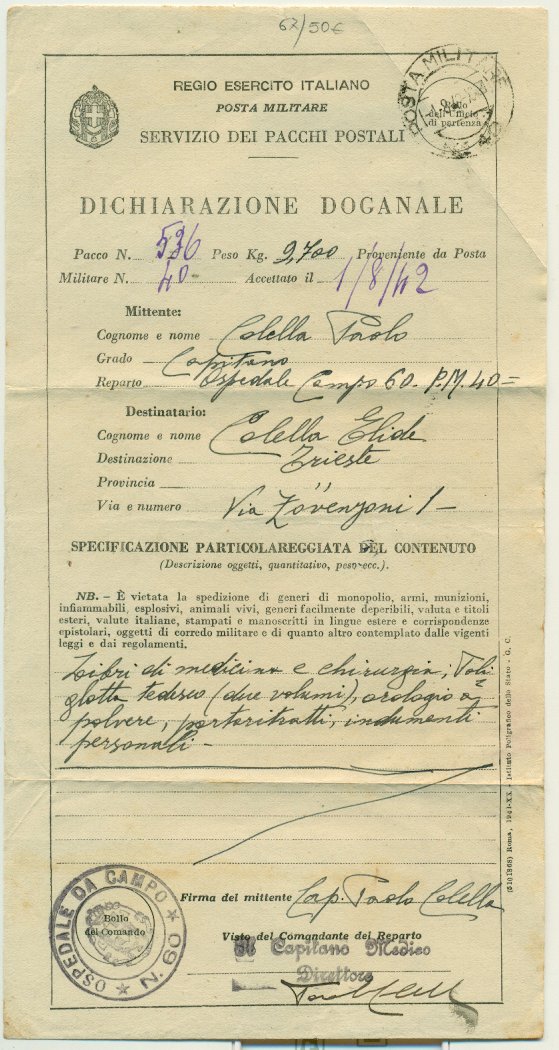 62/50€
REGIO ESERCITO ITALIANO
POSTA MILITARE
SERVIZIO DEI PACCHI POSTALI
POSTA MILITARE
Bollo
dell'Ufficio
di partenza
DICHIARAZIONE DOGANALE
Pacco N. 536 Peso Kg. 2,700 Proveniente da Posta
Militare N. 40 Accettato il 1/8/42
Mittente:
Cognome e nome Colella Paolo
Grado Capitano
Reparto Ospedale Campo 60. P.M. 40=
Destinatario:
Cognome e nome Colella Elide
Destinazione Trieste
Provincia "
Via e numero Via Zovenzoni 1 -
SPECIFICAZIONE PARTICOLAREGGIATA DEL CONTENUTO
(Descrizione oggetti, quantitativo, peso ecc.).
NB. - È vietata la spedizione di generi di monopolio, armi, munizioni,
infiammabili, esplosivi, animali vivi, generi facilmente deperibili, valuta e titoli
esteri, valute italiane, stampati e manoscritti in lingue estere e corrispondenze
epistolari, oggetti di corredo militare e di quanto altro contemplato dalle vigenti
leggi e dai regolamenti.
Libri di medicina e chirurgia, Poli
glotta tedesco (due volumi), orologio a
polvere, portaritratti, indumenti
personali -
(3101868) Roma, 1941-XX. - Istituto Poligrafico dello Stato - G. C.
OSPEDALE DA CAMPO N. 60
Bollo
del Comando
Firma del mittente Cap. Paolo Colella
Visto del Comandante del Reparto
Il Capitano Medico
Direttore